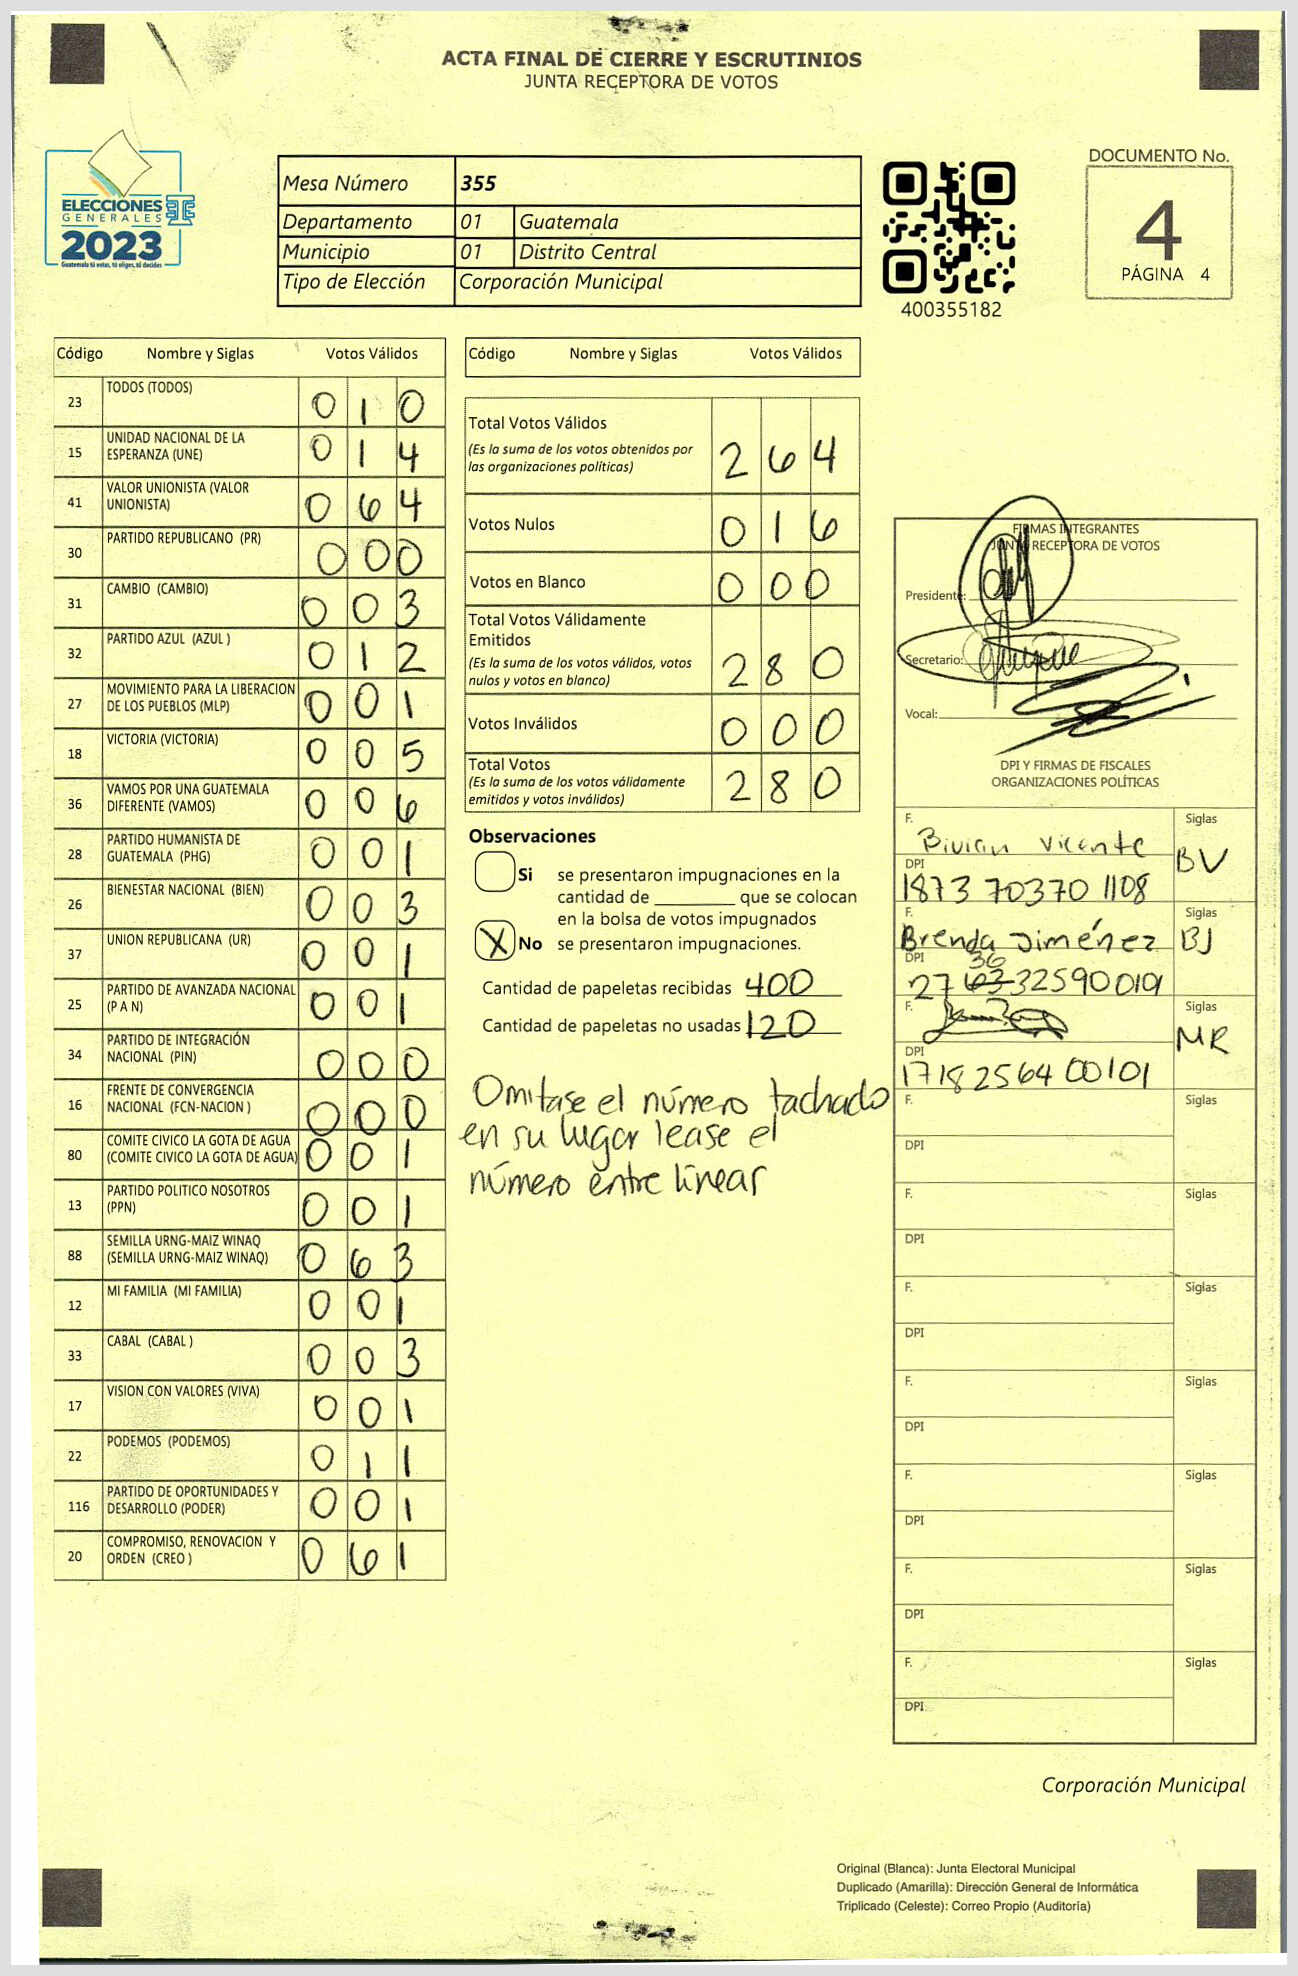 ACTA FINAL DE CIERRE Y ESCRUTINIOS
JUNTA RECEPTORA DE VOTOS
ELECCIONES
GENERALES
2023
Guatemala tú votas, tú eliges, tú decides
Mesa Número 355
Departamento 01 Guatemala
Municipio 01 Distrito Central
Tipo de Elección Corporación Municipal
400355182
DOCUMENTO No.
4
PÁGINA 4
Código Nombre y Siglas Votos Válidos
23 TODOS (TODOS) 0 1 0
15 UNIDAD NACIONAL DE LA
ESPERANZA (UNE) 0 1 4
41 VALOR UNIONISTA (VALOR
UNIONISTA) 0 6 4
30 PARTIDO REPUBLICANO (PR) 0 0 0
31 CAMBIO (CAMBIO) 0 0 3
32 PARTIDO AZUL (AZUL ) 0 1 2
27 MOVIMIENTO PARA LA LIBERACION
DE LOS PUEBLOS (MLP) 0 0 1
18 VICTORIA (VICTORIA) 0 0 5
36 VAMOS POR UNA GUATEMALA
DIFERENTE (VAMOS) 0 0 6
28 PARTIDO HUMANISTA DE
GUATEMALA (PHG) 0 0 1
26 BIENESTAR NACIONAL (BIEN) 0 0 3
37 UNION REPUBLICANA (UR) 0 0 1
25 PARTIDO DE AVANZADA NACIONAL
(P A N) 0 0 1
34 PARTIDO DE INTEGRACIÓN
NACIONAL (PIN) 0 0 0
16 FRENTE DE CONVERGENCIA
NACIONAL (FCN-NACION ) 0 0 0
80 COMITE CIVICO LA GOTA DE AGUA
(COMITE CIVICO LA GOTA DE AGUA) 0 0 1
13 PARTIDO POLITICO NOSOTROS
(PPN) 0 0 1
88 SEMILLA URNG-MAIZ WINAQ
(SEMILLA URNG-MAIZ WINAQ) 0 6 3
12 MI FAMILIA (MI FAMILIA) 0 0 1
33 CABAL (CABAL ) 0 0 3
17 VISION CON VALORES (VIVA) 0 0 1
22 PODEMOS (PODEMOS) 0 1 1
116 PARTIDO DE OPORTUNIDADES Y
DESARROLLO (PODER) 0 0 1
20 COMPROMISO, RENOVACION Y
ORDEN (CREO ) 0 6 1
Código Nombre y Siglas Votos Válidos
Total Votos Válidos
(Es la suma de los votos obtenidos por
las organizaciones políticas) 2 6 4
Votos Nulos 0 1 6
Votos en Blanco 0 0 0
Total Votos Válidamente
Emitidos
(Es la suma de los votos válidos, votos
nulos y votos en blanco) 2 8 0
Votos Inválidos 0 0 0
Total Votos
(Es la suma de los votos válidamente
emitidos y votos inválidos) 2 8 0
Observaciones
Si se presentaron impugnaciones en la
cantidad de ________ que se colocan
en la bolsa de votos impugnados
X No se presentaron impugnaciones.
Cantidad de papeletas recibidas 400
Cantidad de papeletas no usadas 120
Omitase el número tachado
en su lugar lease el
número entre linear
FIRMAS INTEGRANTES
JUNTA RECEPTORA DE VOTOS
Presidente:
Secretario:
Vocal:
DPI Y FIRMAS DE FISCALES
ORGANIZACIONES POLÍTICAS
F. Bivian Vicente Siglas BV
DPI 1873 70370 1108
F. Brenda Jiménez Siglas BJ
36
DPI 27 63 32590 0101
F. Siglas MR
DPI 1718 25640 0101
F. Siglas
DPI
F. Siglas
DPI
F. Siglas
DPI
F. Siglas
DPI
F. Siglas
DPI
F. Siglas
DPI
F. Siglas
DPI
Corporación Municipal
Original (Blanca): Junta Electoral Municipal
Duplicado (Amarilla): Dirección General de Informática
Triplicado (Celeste): Correo Propio (Auditoría)